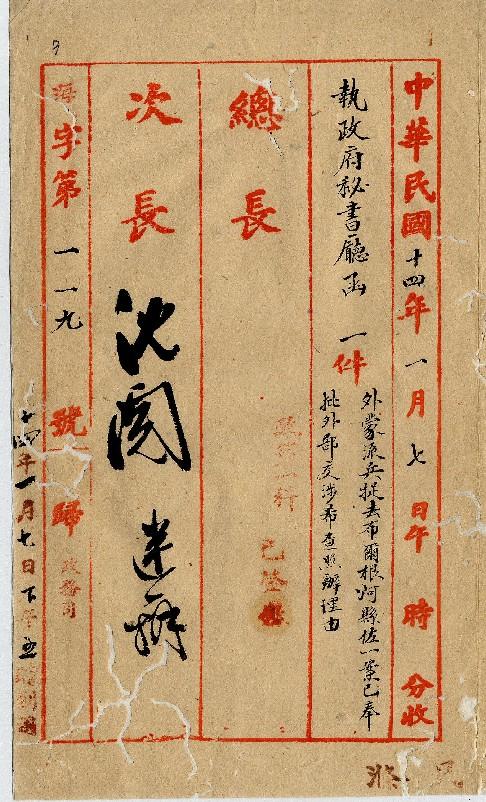 中華民國十四年一月七日午 時 分收
執政府秘書廳函一件
外蒙派兵捉去布爾根河縣佐一案已奉
批外部交涉希查照辦理由
總長
次長
沈閱
速辦
字第一一九號歸政務司
十四年一月七日下午